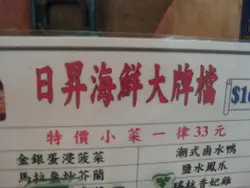 日昇海鮮大牌檔
$1
特價小菜一律33元
金銀蛋浸菠菜
潮式鹵水鴨
馬拉盞炒芥蘭
鹽水鳳爪